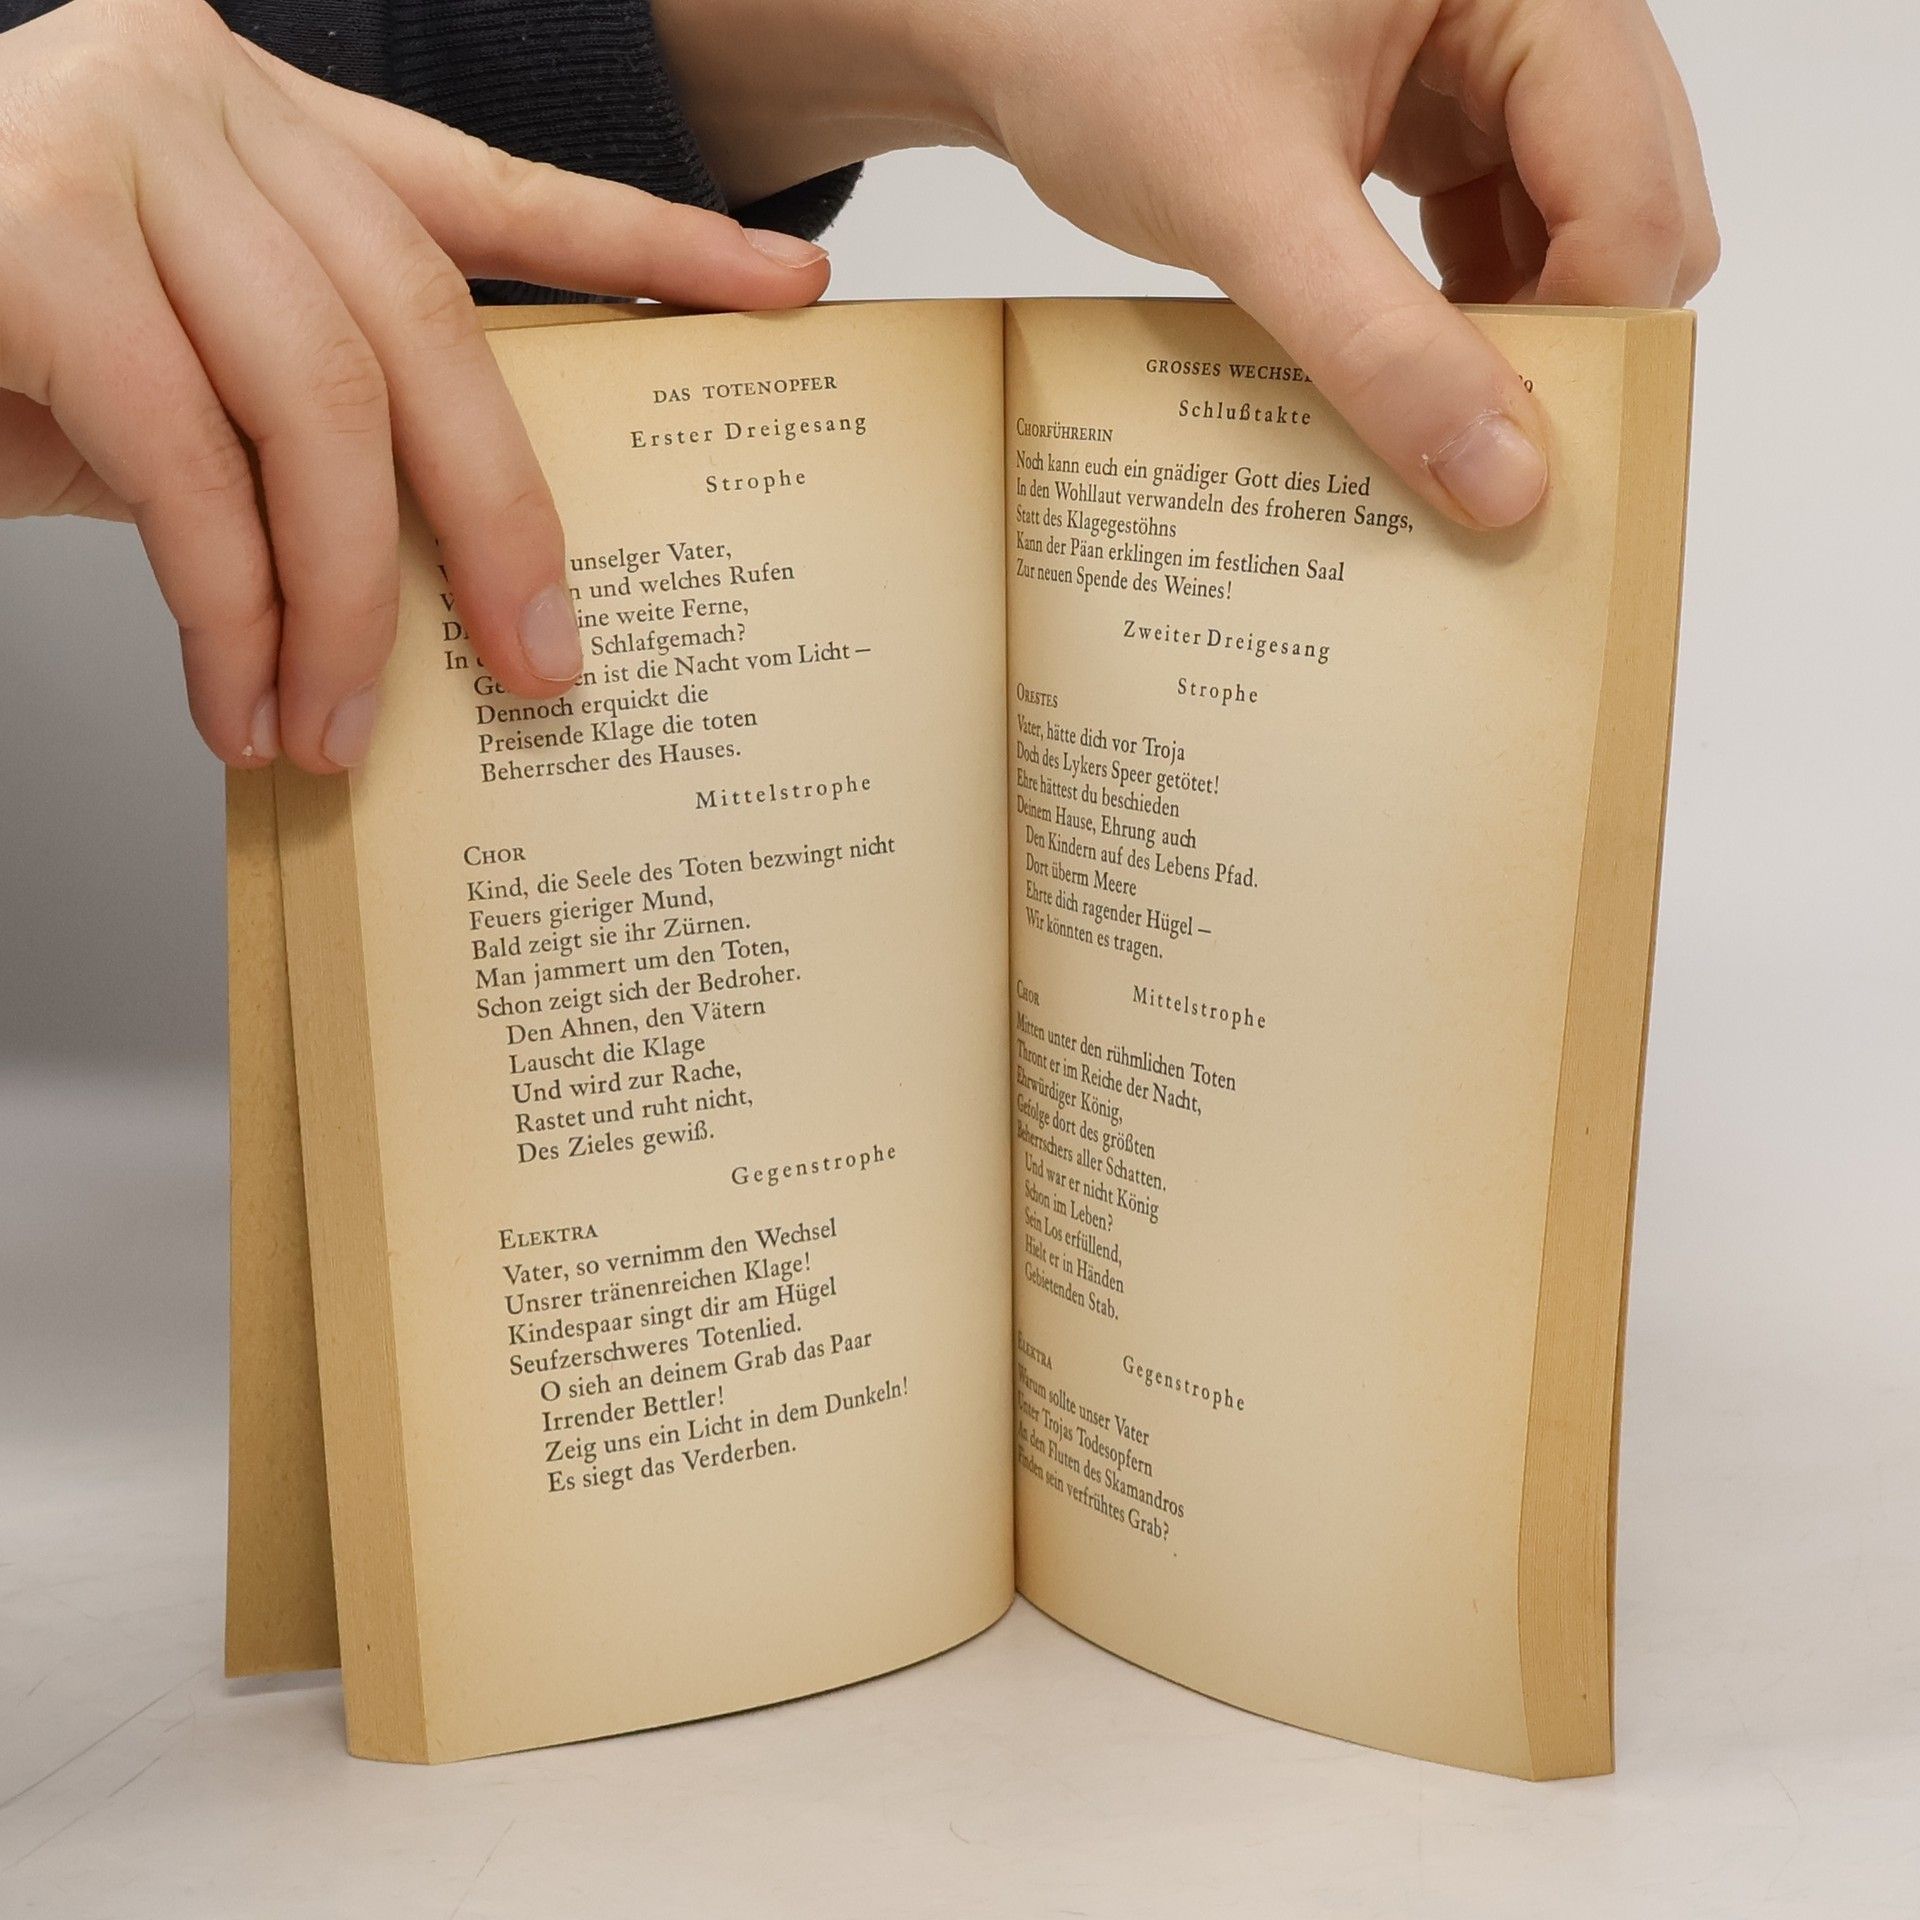 DAS TOTENOPFER
Erster Dreigesang
Strophe
unselger Vater,
und welches Rufen
weite Ferne,
In Schlafgemach?
ist die Nacht vom Licht —
Dennoch erquickt die
Preisende Klage die toten
Beherrscher des Hauses.
Mittelstrophe
CHOR
Kind, die Seele des Toten bezwingt nicht
Feuers gieriger Mund,
Bald zeigt sie ihr Zürnen.
Man jammert um den Toten,
Schon zeigt sich der Bedroher.
Den Ahnen, den Vätern
Lauscht die Klage
Und wird zur Rache,
Rastet und ruht nicht,
Des Zieles gewiß.
Gegenstrophe
ELEKTRA
Vater, so vernimm den Wechsel
Unsrer tränenreichen Klage!
Kindespaar singt dir am Hügel
Seufzerschweres Totenlied.
O sieh an deinem Grab das Paar
Irrender Bettler!
Zeig uns ein Licht in dem Dunkeln!
Es siegt das Verderben.
GROSSES
Schlußtakte
CHORFÜHRERIN
Noch kann euch ein gnädiger Gott dies Lied
In den Wohllaut verwandeln des froheren Sangs,
Statt des Klagegestöhns
Kann der Päan erklingen im festlichen Saal
Zur neuen Spende des Weines!
Zweiter Dreigesang
Strophe
ORESTES
Vater, hätte dich vor Troja
Doch des Lykers Speer getötet!
Ehre hättest du beschieden
Deinem Hause, Ehrung auch
Den Kindern auf des Lebens Pfad.
Dort überm Meere
Ehrte dich ragender Hügel —
Wir könnten es tragen.
Mittelstrophe
CHOR
Mitten unter den rühmlichen Toten
Thront er im Reiche der Nacht,
Ehrwürdiger König,
Gefolge dort des größten
Beherrschers aller Schatten.
Und war er nicht König
Schon im Leben?
Sein Los erfüllend,
Hielt er in Händen
Gebietenden Stab.
Gegenstrophe
ELEKTRA
Warum sollte unser Vater
Unter Trojas Todesopfern
An den Fluten des Skamandros
Finden sein verfrühtes Grab?